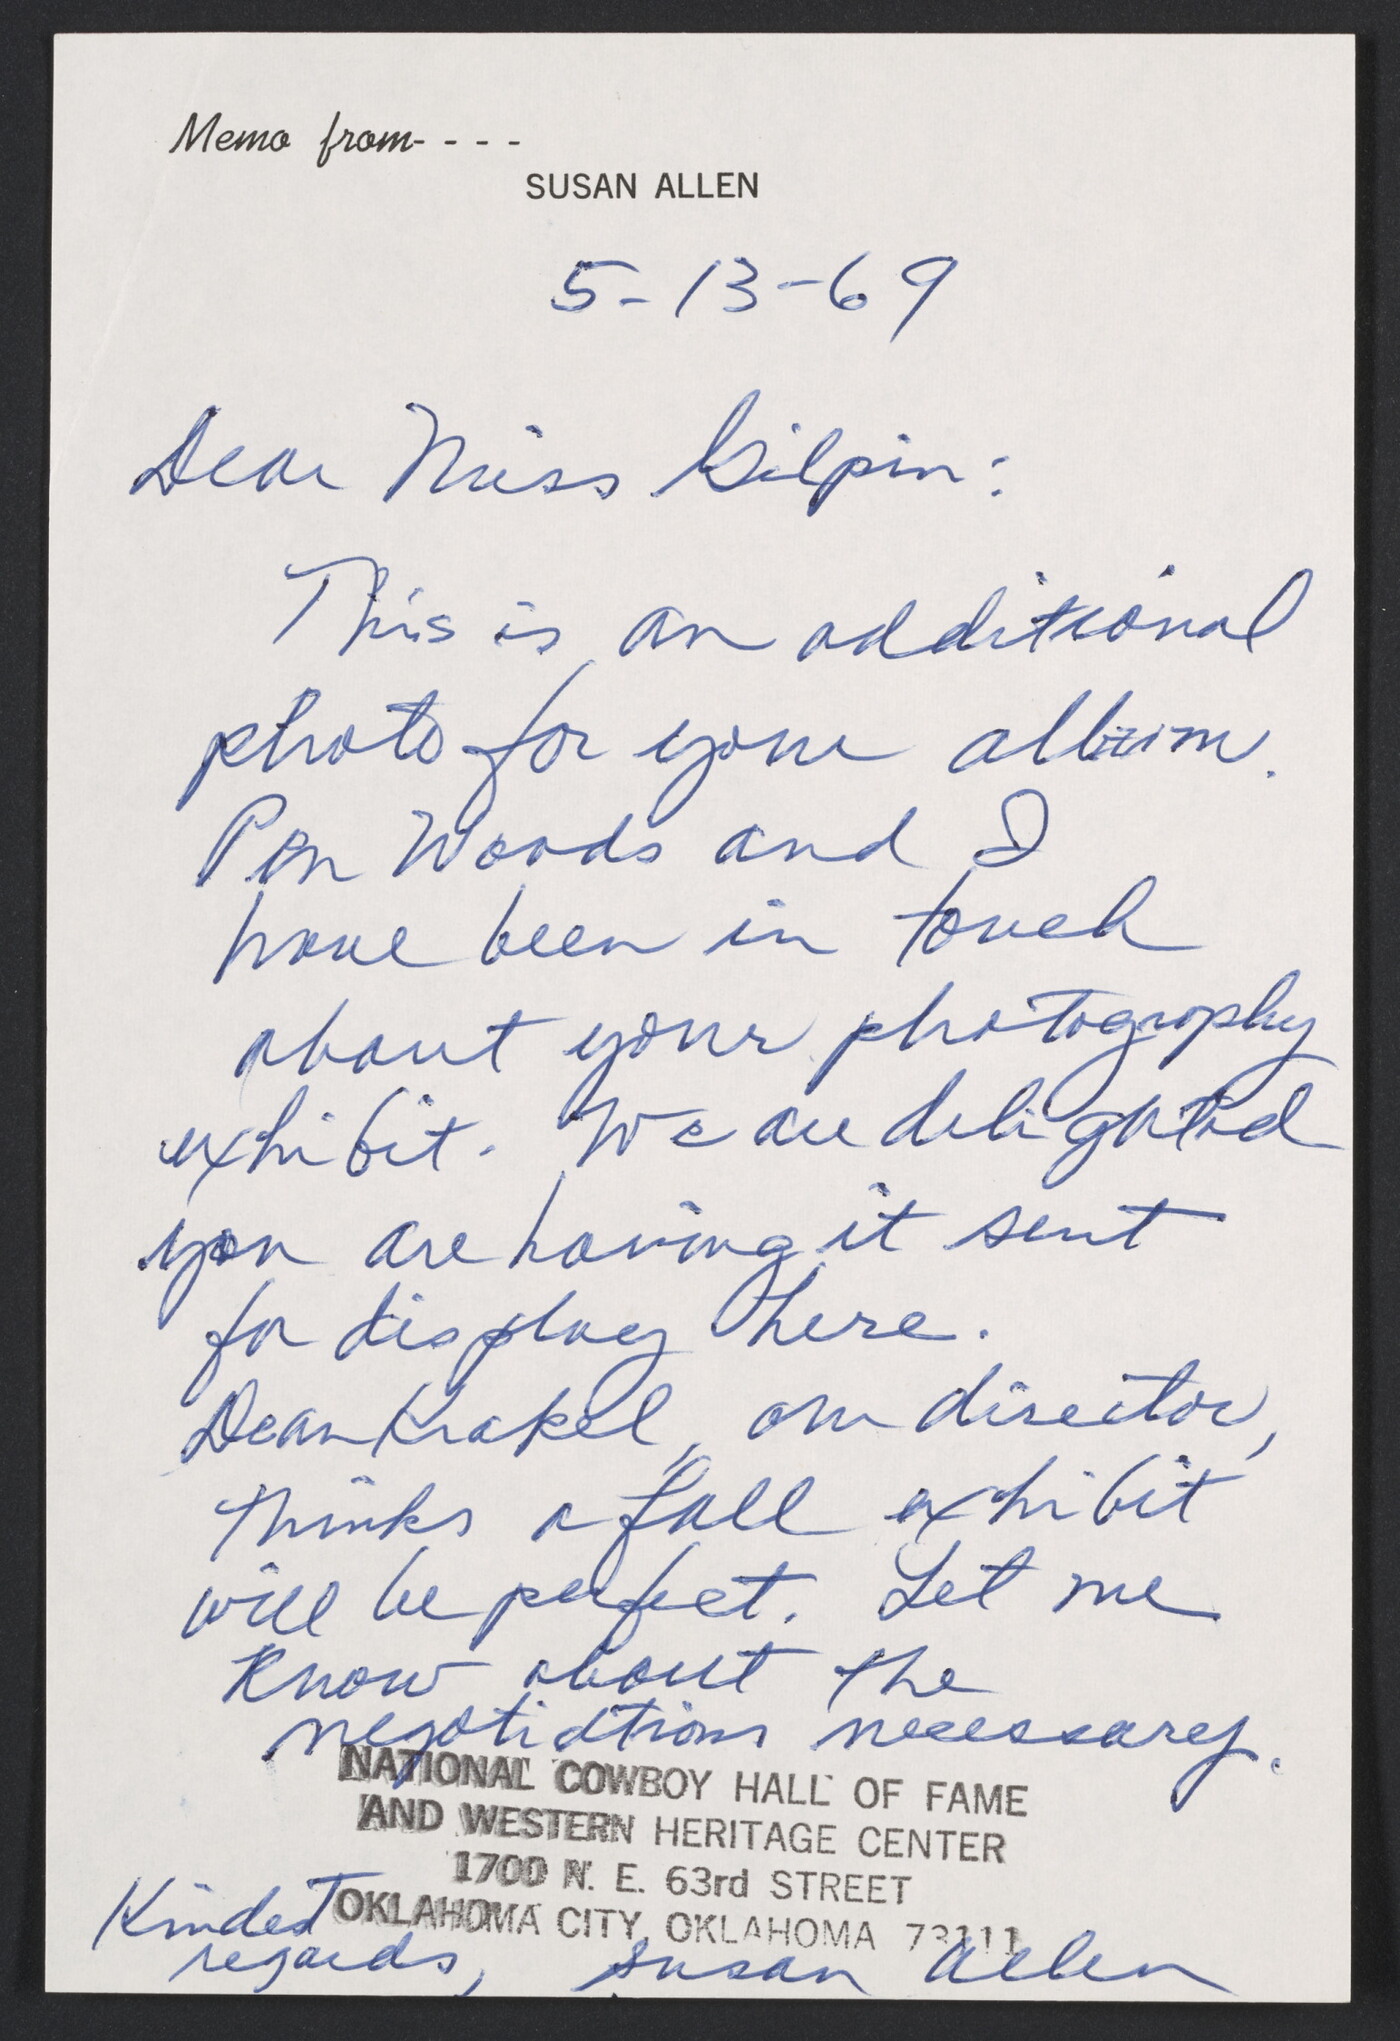 Memo from- - - -
SUSAN ALLEN
5-13-69
Dear Miss Gilpin:
This is an additional
photo for your album.
Pen Woods and I
have been in touch
about your photography
exhibit. We are delighted
you are having it sent
for display here.
Dean Krakel, our director,
thinks a fall exhibit
will be perfect. Let me
know about the
negotiations necessary.
NATIONAL COWBOY HALL OF FAME
AND WESTERN HERITAGE CENTER
1700 N. E. 63rd STREET
OKLAHOMA CITY, OKLAHOMA 73111
Kindest
regards, Susan Allen